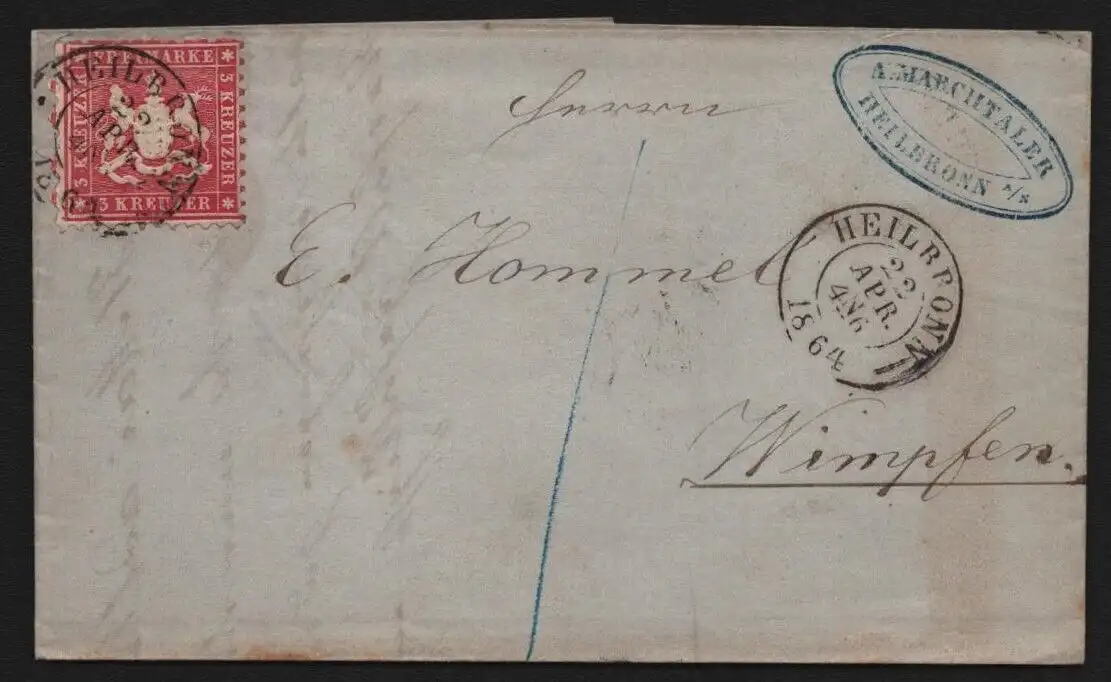 FREIMARKE
3 KREUZER
3 KREUZER
3 KREUZER
HEILBRONN
22
APR.
1864
A. MARCHTALER
HEILBRONN a/N
Herrn
E. Hommel
HEILBRONN
22
APR.
4N6
1864
Wimpfen.